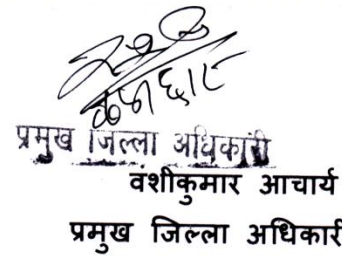 प्रमुख जिल्ला अधिकारी
वशीकुमार आचार्य
प्रमुख जिल्ला अधिकारी